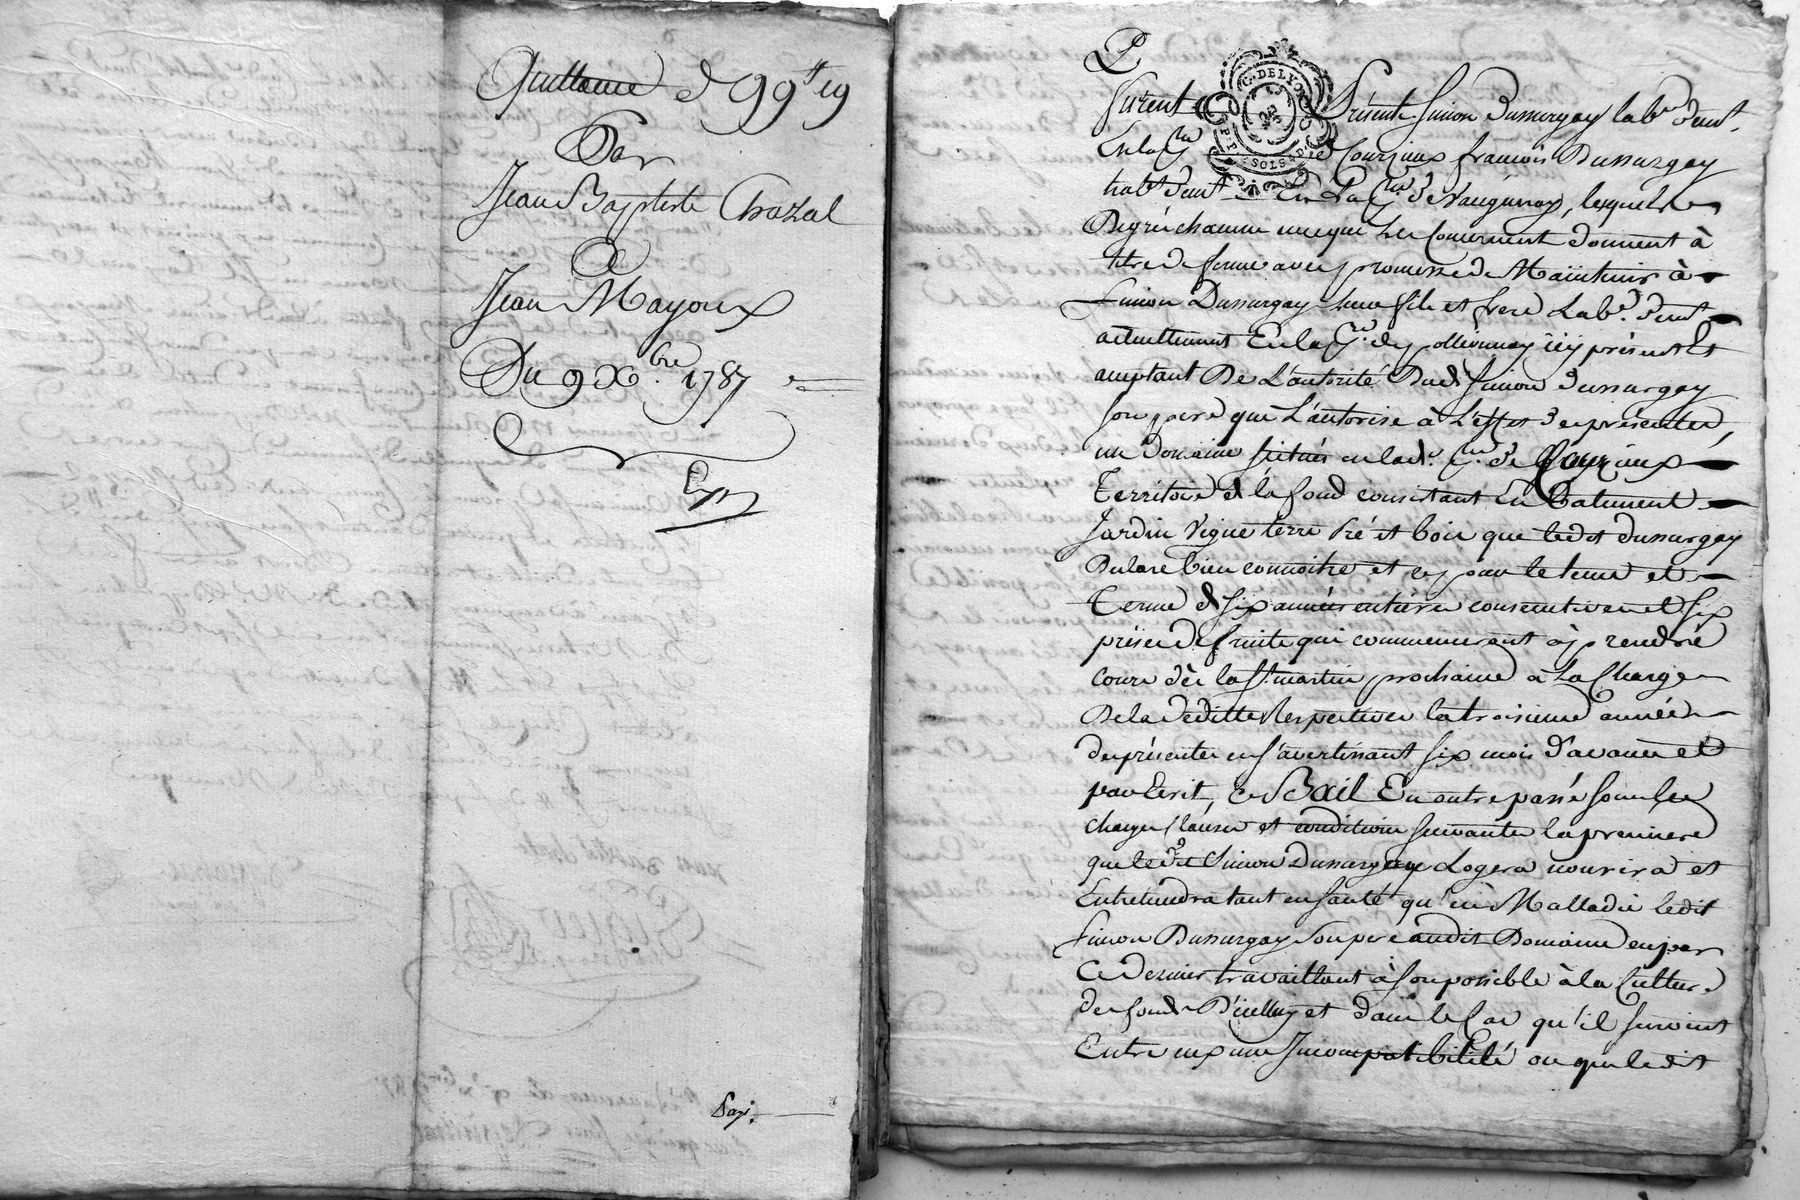 Quittance de 99tt 19
Par
Jean Baptiste Chazal
a
Jean Mayoux
Du 9 Xbre 1787
Exp
Pay.
P
G. DE LYON
SOLS
furent Présent Simon Dussurgey labr demt.
En la psse de Courzieux françois Dussurgey
habt demt En La psse de Vaugneray, lesquels
De gré chacun en ce que Les Concernent donnent à
titre de ferme avec promesse de Maintenir à
Simon Dussurgey leur fils et frere Labr. demt
actuellement En la psse. de pollionnay icy présent Et
aceptant De L'autorité Dud. Simon Dussurgey
Son pere que L'autorise à L'effet des présentes,
un Domaine situés en lade. psse. de Courzieux
Territoire de la fond consistant En Batiment
Jardin Vigne terre Pré et bois que ledit Dussurgey
Declare bien connoitre et ce pour le tems et
Terme de six années entieres consecutives et six
prises de fruits qui commenceront à prendre
cours dès la St. martin prochaine à La Charge
De la deditte Respective la troisieme année
des présentes en s'avertissant six mois d'avance et
par Ecrit, ce Bail En outre passé sous les
charges clauses et conditions suivantes la premiere
que ledit Simon Dussurgey Logera nourrira et
Entretiendra tant en santé qu'en Malladie ledit
Simon Dussurgey son pere audit Domaine en par
Ce dernier travaillant à son possible à la Culture
des fonds D'icelluy et dans le Cas qu'il survint
Entre eux une Incompatibilité ou que ledit